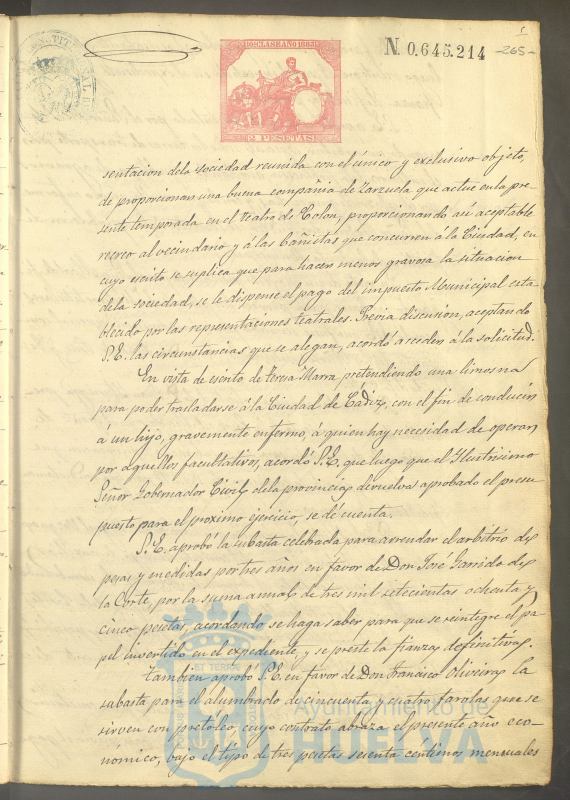 N. 0.645.214 265
10ª CLASE AÑO 1883
2 PESETAS
sentacion dela sociedad reunida con el único y exclusivo objeto,
de proporcionar una buena compañia de Zarzuela que actúe en la pre-
sente temporada en el Teatro de Colon, proporcionando asi aceptable
recreo al vecindario y á las Bañistas que concurren á la Ciudad, en
cuyo escrito se suplica que para hacer menos gravosa la situacion
dela sociedad, se le dispense el pago del impuesto Municipal esta
blecido por las representaciones teatrales. Previa discusion, aceptando
S.E. las circunstancias que se alegan, acordó acceder á la solicitud.
En vista de escrito de Teresa Marra pretendiendo una limosna
para poder trasladarse á la Ciudad de Cádiz, con el fin de conducir
á un hijo, gravemente enfermo, á quien hay necesidad de operar
por aquellos facultativos, acordó S.E. que luego que el Ilustrisimo
Señor Gobernador Civil dela provincia devuelva aprobado el presu
puesto para el proximo ejercicio, se dé cuenta.
S.E. aprobó la subasta celebrada para arrendar el arbitrio de
pesas y medidas por tres años en favor de Don José Garrido de
la Corte, por la suma anual de tres mil setecientas ochenta y
cinco pesetas, acordando se haga saber para que se reintegre el pa
pel invertido en el expediente, y se preste la fianza definitiva.
Tambien aprobó S.E. en favor de Don Francisco Oliveira la
subasta para el alumbrado de cincuenta y cuatro farolas que se
sirven con petróleo, cuyo contrato abraza el presente año eco-
nómico, bajo el tipo de tres pesetas sesenta céntimos mensuales
Ayuntamiento de
HUELVA